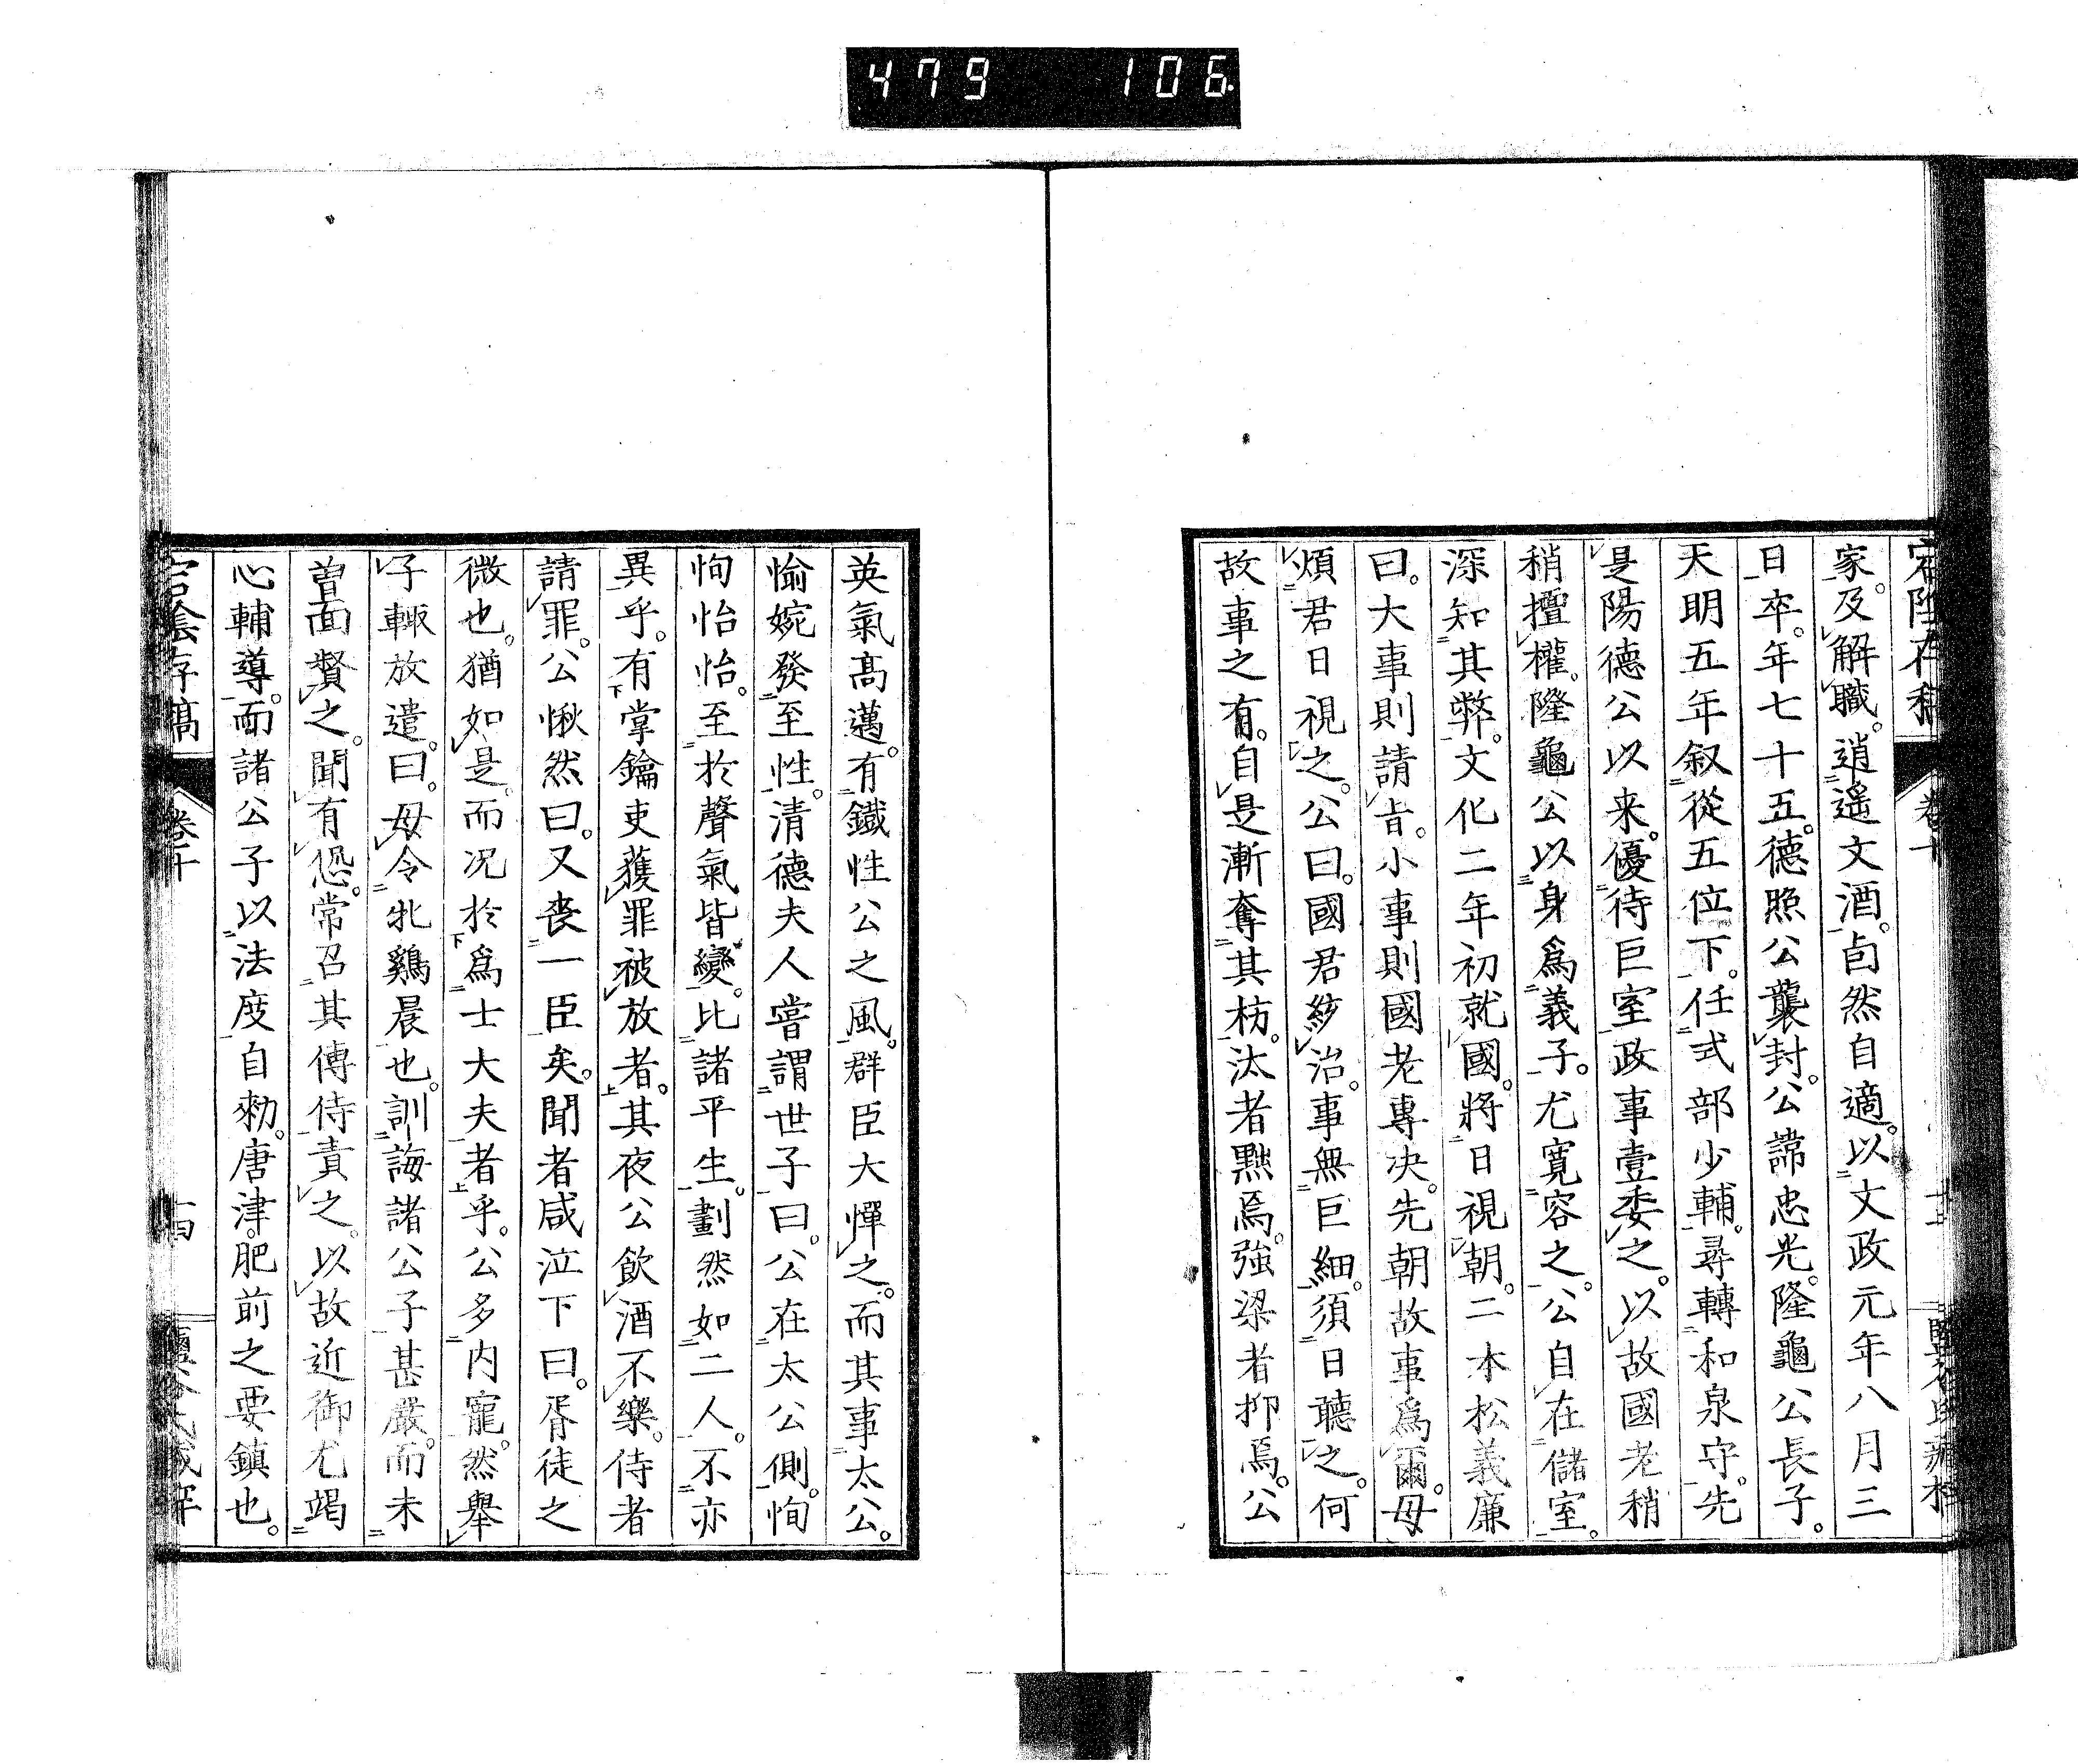 479 106
家。及解職。逍遙文酒。卣然自適。以文政元年八月三
日卒。年七十五。德照公襲封。公諱忠光。隆龜公長子。
天明五年叙從五位下。任式部少輔。尋轉和泉守。先
是陽德公以来。優待巨室。政事壹委之。以故國老稍
稍擅權。隆龜公以身爲義子。尤寛容之。公自在儲室。
深知其弊。文化二年初就國。將日視朝。二本松義廉
曰。大事則請旨。小事則國老專决。先朝故事爲爾。毋
煩君日視之。公曰。國君紗治。事無巨細。須日聽之。何
故事之有。自是漸奪其枋。汰者黜焉。強梁者抑焉。公
英氣高邁。有鐵性公之風。群臣大憚之。而其事太公。
愉婉發至性。清德夫人嘗謂世子曰。公在太公側。恂
恂怡怡。至於聲氣皆變。比諸平生。劃然如二人。不亦
異乎。有掌鑰吏獲罪被放者。其夜公飲酒不樂。侍者
請罪。公愀然曰。又丧一臣矣。聞者咸泣下曰。胥徒之
微也。猶如是。而况於爲士大夫者乎。公多内寵。然舉
子輙放遣。曰。毋令牝鷄晨也。訓誨諸公子甚嚴。而未
曽面贅之。聞有愆。常召其傅侍責之。以故近御尤竭
心輔導。而諸公子以法度自勑。唐津。肥前之要鎮也。
宕陰存稿 卷十 十四